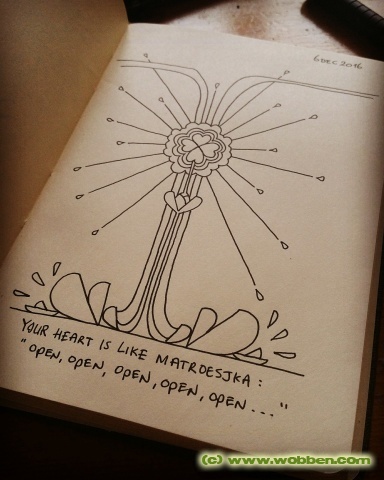 6 DEC 2016
YOUR HEART IS LIKE MATROESJKA:
"OPEN, OPEN, OPEN, OPEN, OPEN..."
(c) www.wobben.com